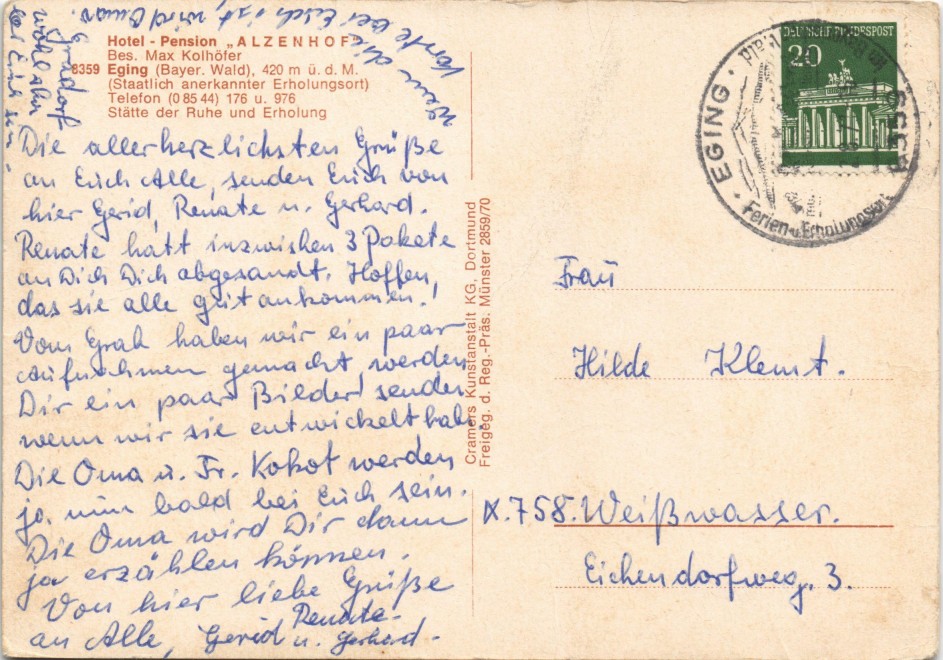 Hotel - Pension „ALZENHOF"
Bes. Max Kolhöfer
8359 Eging (Bayer. Wald), 420 m ü. d. M.
(Staatlich anerkannter Erholungsort)
Telefon (0 85 44) 176 u. 976
Stätte der Ruhe und Erholung
Die allerherzlichsten Grüße
an Euch Alle, senden Euch von
hier Gerid, Renate u. Gerhard.
Renate hatt inzwishen 3 Pakete
an Dich Dich abgesandt. Hoffen,
das sie alle gut ankommen.!
Vom Grab haben wir ein paar
Aufnahmen gemacht, werden
Dir ein paar Bilder senden
wenn wir sie entwickelt hab.
Die Oma u. Fr. Kokot werden
ja nun bald bei Euch sein.
Die Oma wird Dir dann
ja erzählen können.
Von hier liebe Grüße
an Alle, Gerid Renate
u. Gerhard-
Wenn die Karte bei Euch ist, wird Oma
wohl schon
bei Euch sein.
Cramers Kunstanstalt KG, Dortmund
Freigeg. d. Reg.-Präs. Münster 2859/70
DEUTSCHE BUNDESPOST
20
EGING
8359
Ferien-u.Erholungsort
Frau
Hilde Klemt.
X.758.Weißwasser.
Eichendorfweg. 3.